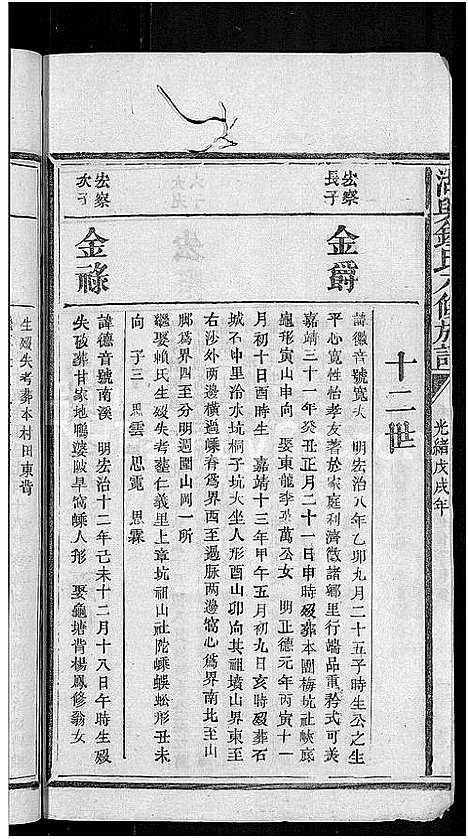 光緒戊戌年
十二世
宏察
長子
金爵
諱徽音號寬夫 明宏治八年乙卯九月二十五子時生公之生
平心寬性怡孝友著於家庭利濟徵諸鄉里行端品重矜式可美
嘉靖三十一年癸丑正月二十一日申時歿葬本團梅坑社峽廊
龜形寅山申向 娶東龍李萬公女 明正德元年丙寅十一
月初十日酉時生 嘉靖十三年甲午五月初九日亥時歿葬石
城木中里冷水坑桐子坑大坐人形酉山卯向其祖墳山界東至
右沙外兩邊橫過嵊脊爲界西至過脉兩邊窩心爲界南北至山
腳爲界四至分明週圍山岡一所
繼娶賴氏生歿失考葬仁義里上章坑祖山社陀嵊蜈蚣形丑未
向 子三 思雲 思霓 思霖
宏察
次子
金祿
諱德音號南溪 明宏治十二年己未十二月十八日午時生歿
失考葬甘家地鴨婆陂早窩嵊人形 娶龜塘背楊鳳修翁女
生歿失考葬本村田東背